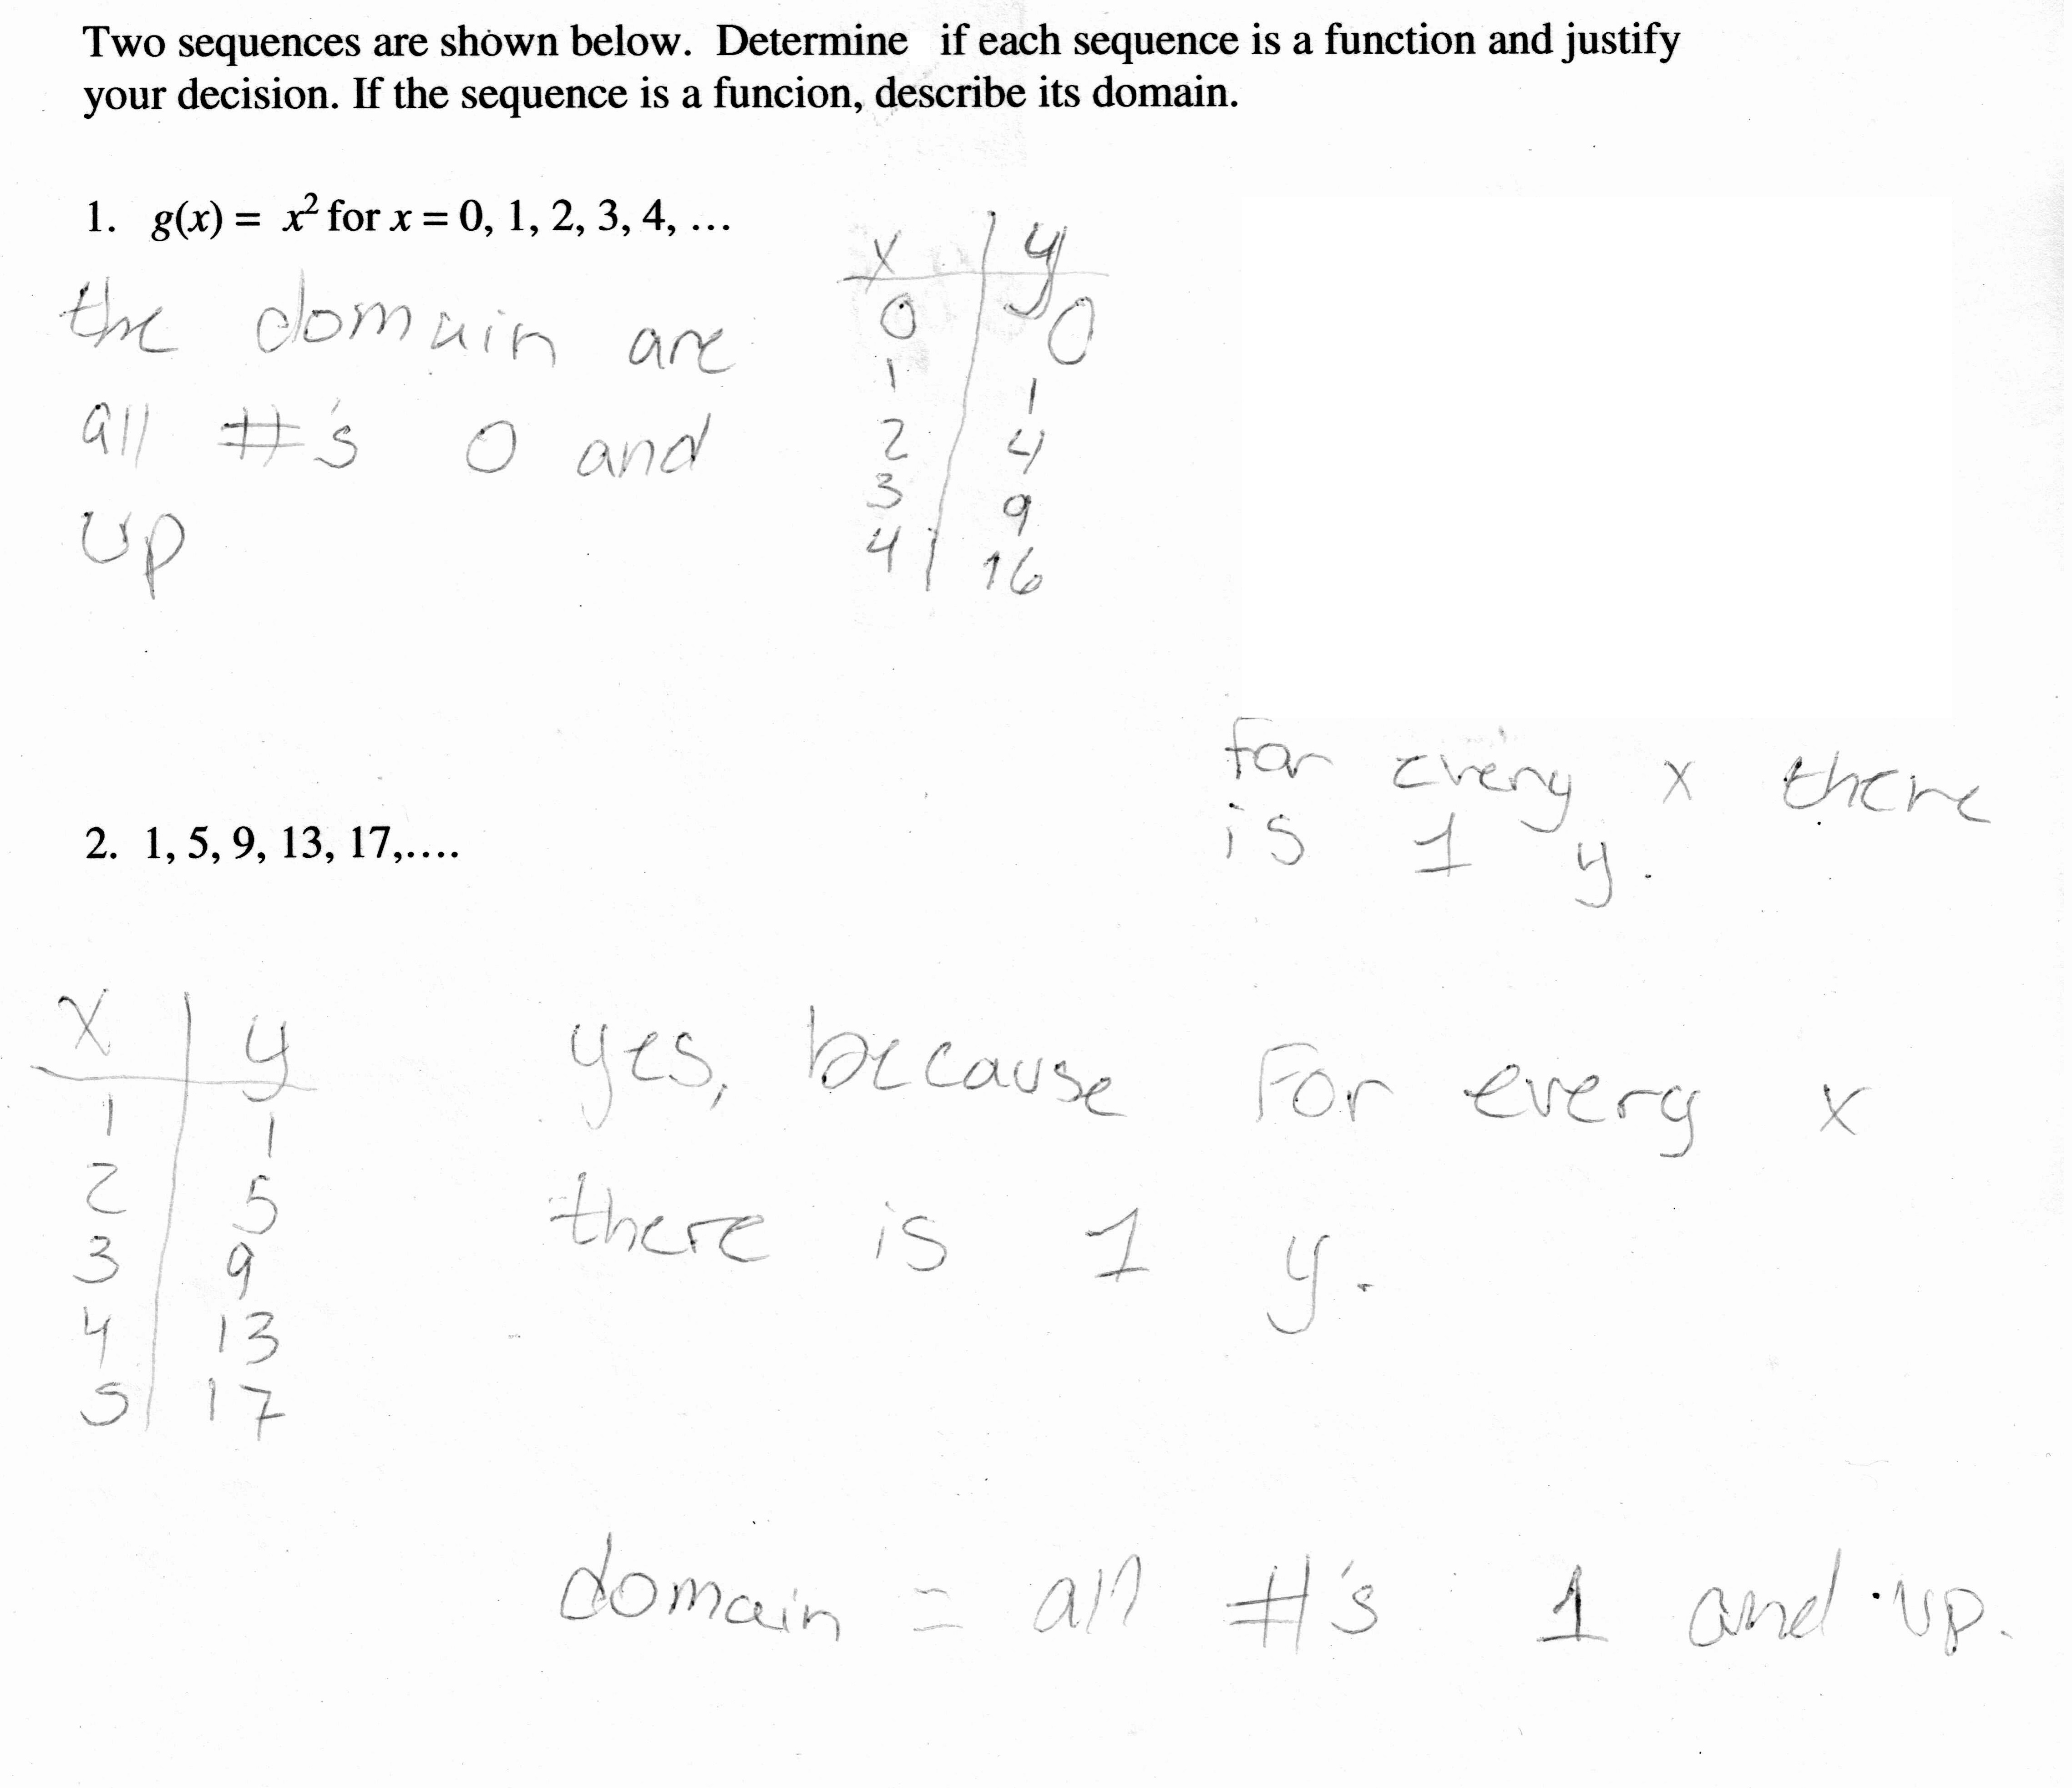 Two sequences are shown below. Determine if each sequence is a function and justify
your decision. If the sequence is a funcion, describe its domain.
1. g(x) = x² for x = 0, 1, 2, 3, 4, ...
the domain are
all #'s 0 and
up
x y
0 0
1 1
2 4
3 9
4 16
for every x there
is 1 y.
2. 1, 5, 9, 13, 17,....
x y
1 1
2 5
3 9
4 13
5 17
yes, because For every x
there is 1 y.
domain = all #'s 1 and up.